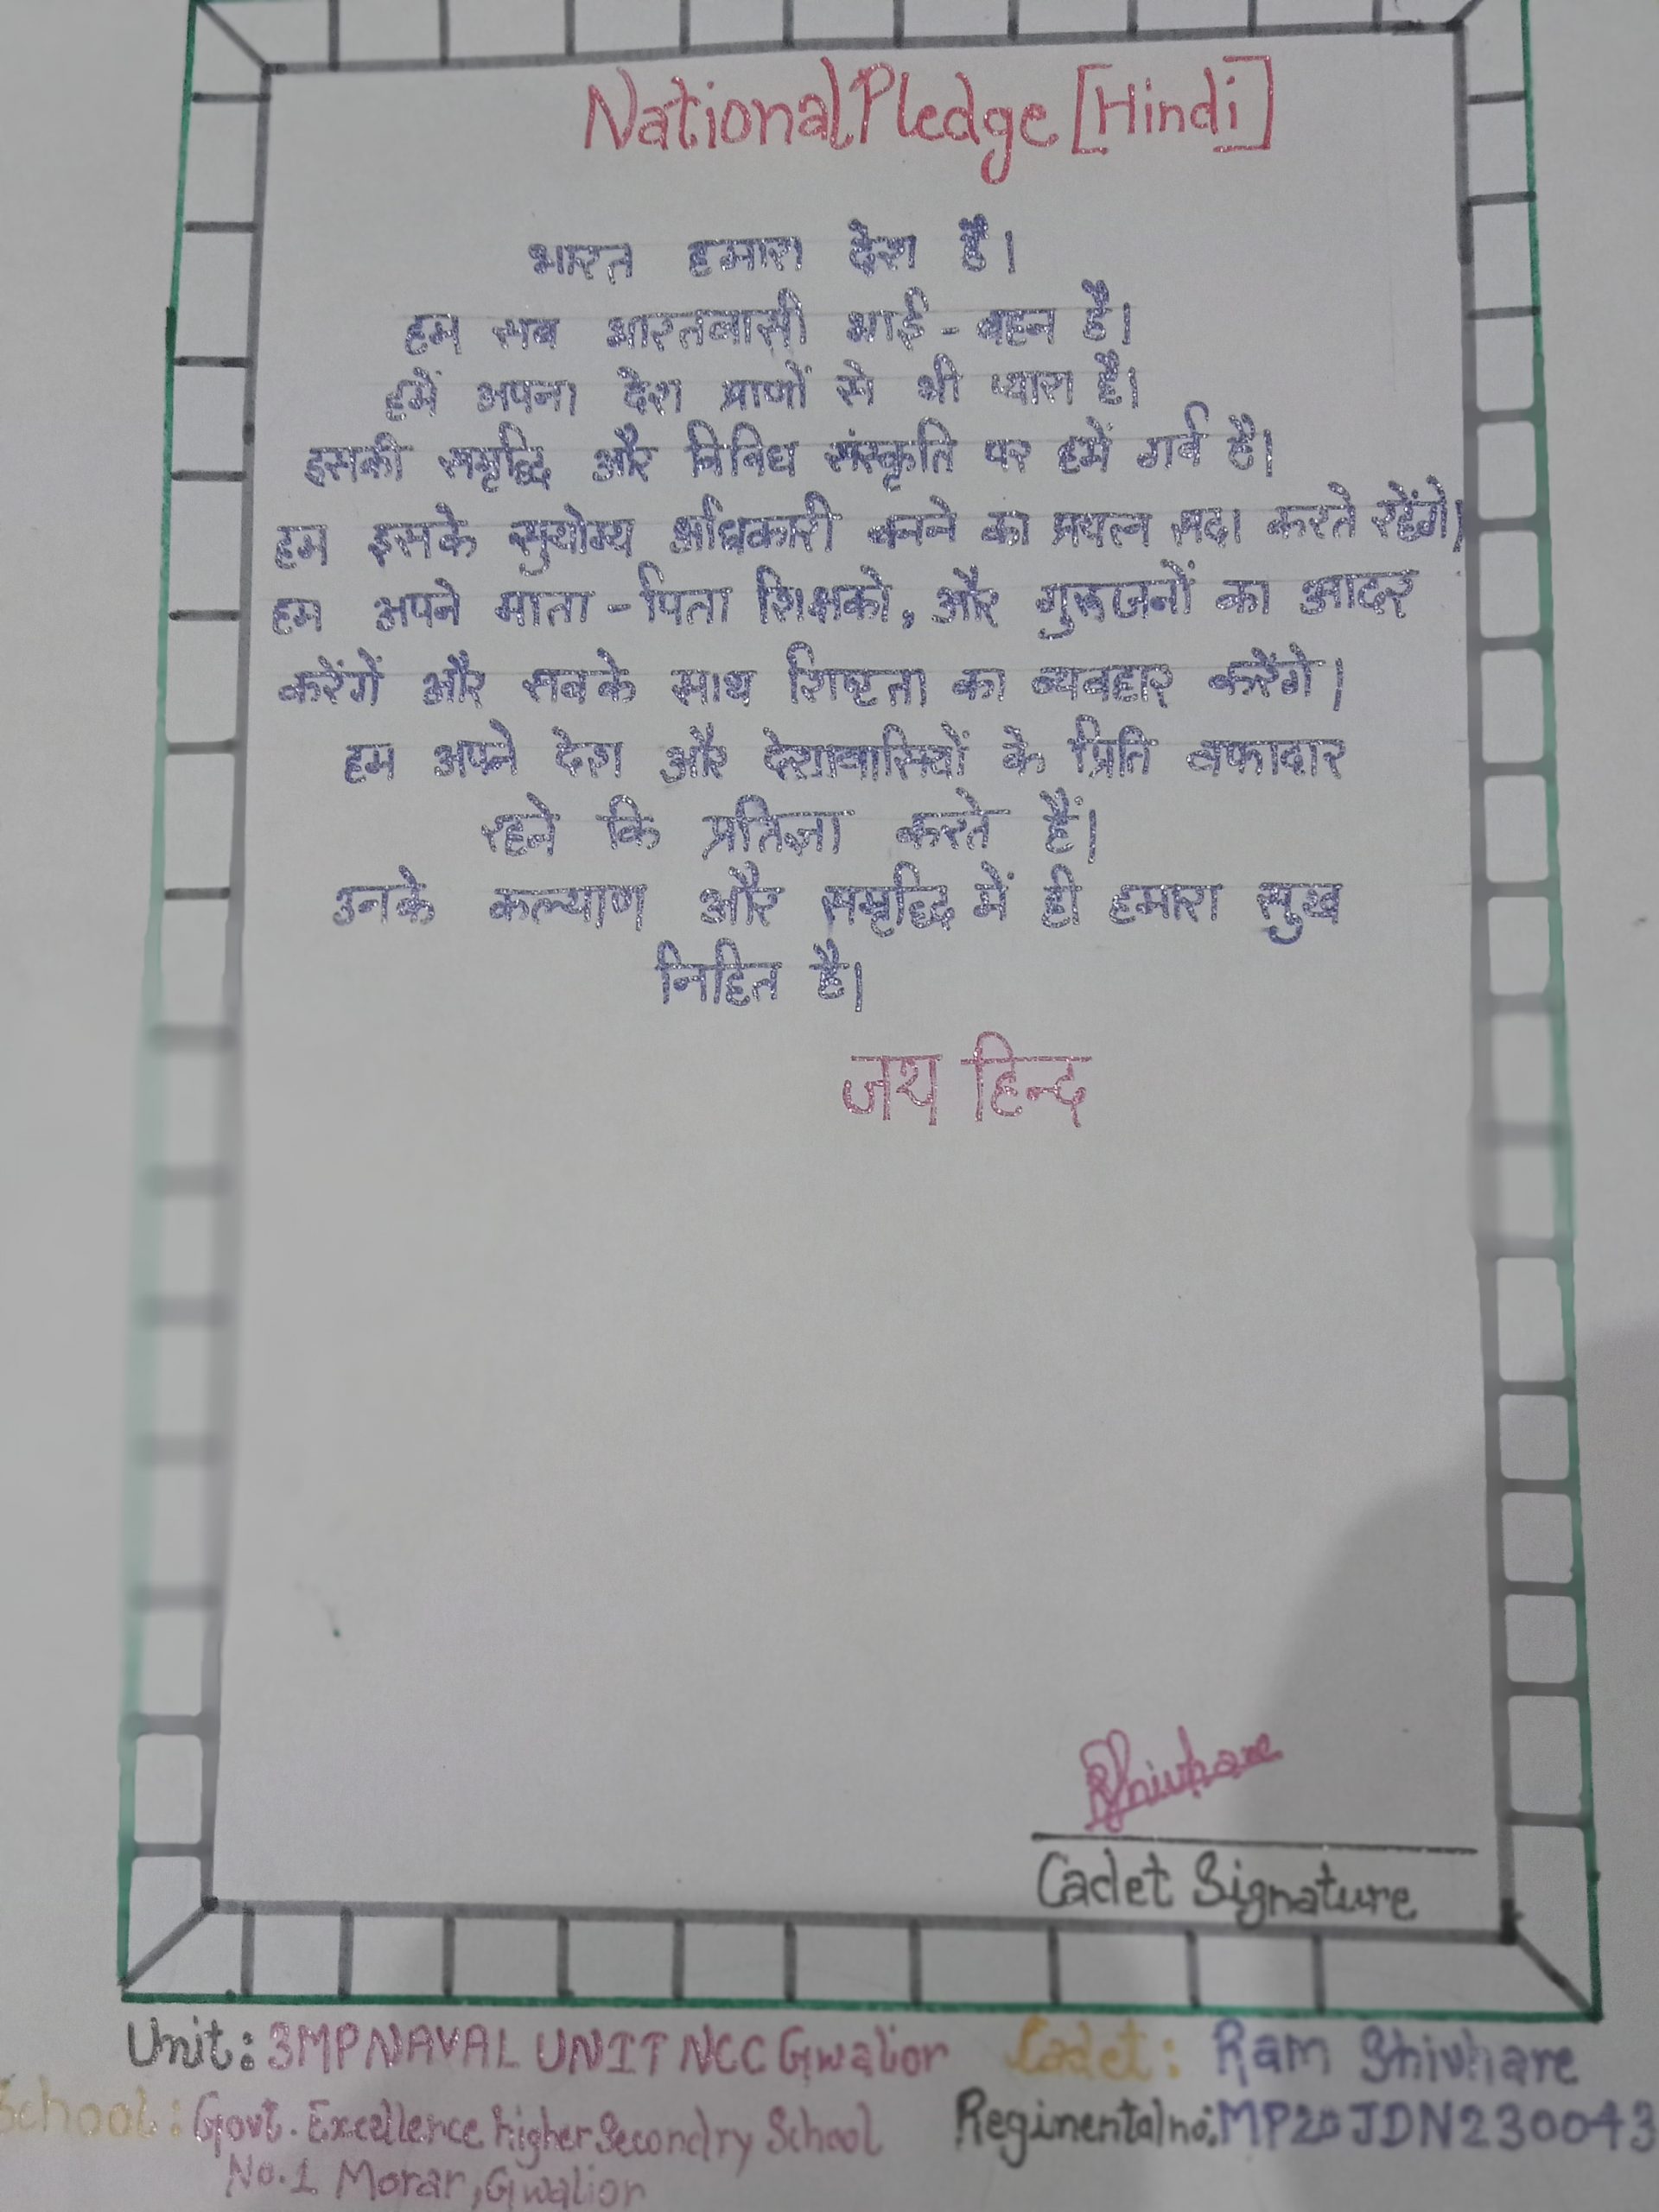 National Pledge [Hindi]
भारत हमारा देश है।
हम सब भारतवासी भाई - बहन है।
हमें अपना देश प्राणों से भी प्यारा है।
इसकी समृद्धि और विविध संस्कृति पर हमें गर्व है।
हम इसके सुयोग्य अधिकारी बनने का प्रयत्न सदा करते रहेंगे।
हम अपने माता - पिता शिक्षको, और गुरूजनों का आदर
करेंगें और सबके साथ शिष्टता का व्यवहार करेंगे।
हम अपने देश और देशवासियों के प्रिति वफादार
रहने कि प्रतिज्ञा करते हैं।
उनके कल्याण और समृद्धि में ही हमारा सुख
निहित है।
जय हिन्द
Shivhare
Cadet Signature
Unit: 3MP NAVAL UNIT NCC Gwalior Cadet: Ram Shivhare
School: Govt. Excellence higher Secondry School Regimental no: MP20JDN230043
No.1 Morar, Gwalior